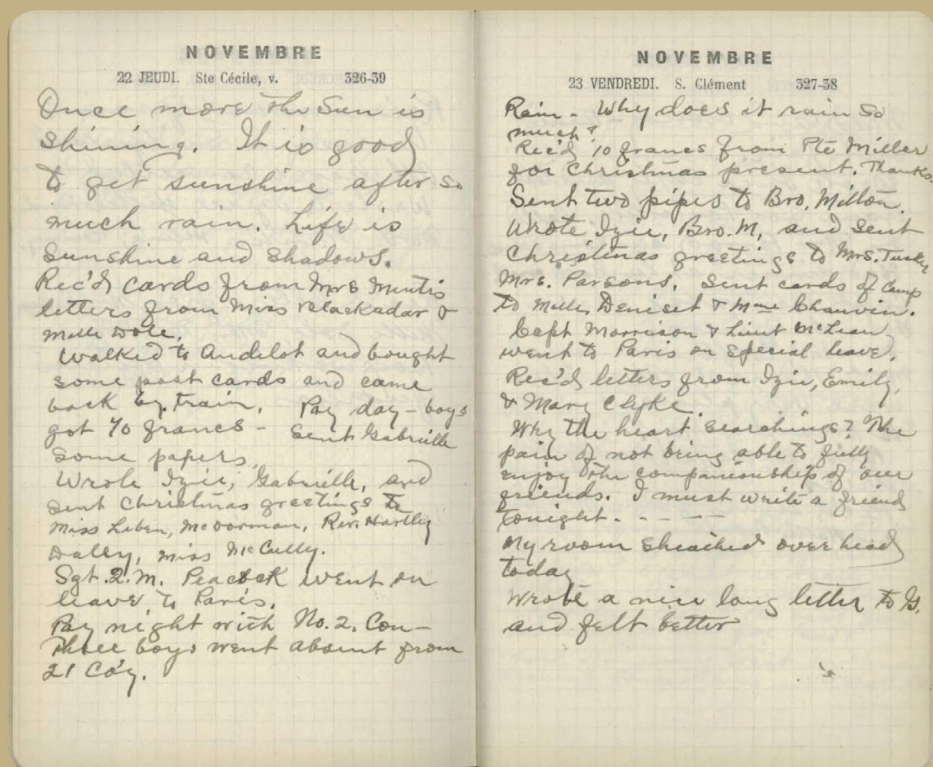 NOVEMBRE
22 JEUDI. Ste Cécile, v. 326-39
Once more the Sun is
shining. It is good
to get sunshine after so
much rain. Life is
Sunshine and shadows.
Rec'd cards from Mrs Mentis
letters from Miss Blackadar &
Mlle Dole.
Walked to Andelot and bought
some post cards and came
back by train. Pay day - boys
got 70 francs - Sent Gabrielle
some papers
Wrote Izie, Gabrielle, and
sent Christmas greetings to
Miss Liben, McDorman, Rev. Hartley
Dally, Miss McCully.
Sgt. 2. M. Peacock went on
leave to Paris.
Pay night with No. 2. Con-
Three boys went absent from
21 Co'y.
NOVEMBRE
23 VENDREDI. S. Clément 327-38
Rain - Why does it rain so
much?
Rec'd 10 francs from Pte Miller
for Christmas present. Thanks.
Sent two pipes to Bro. Milton.
Wrote Izie, Bro. M, and sent
Christmas greetings to Mrs.
Mrs. Parsons. Sent cards of Camp
to Mlle Deniset & Mme Chauvin.
Capt Morrison & Lieut McLean
went to Paris on special leave.
Rec'd letters from Izie, Emily,
& Mary Clyke.
Why the heart searchings? The
pain of not being able to fully
enjoy the companionship of our
friends. I must write a friend
tonight. - - - -
My room sheathed over head
today
Wrote a nice long letter to G.
and felt better